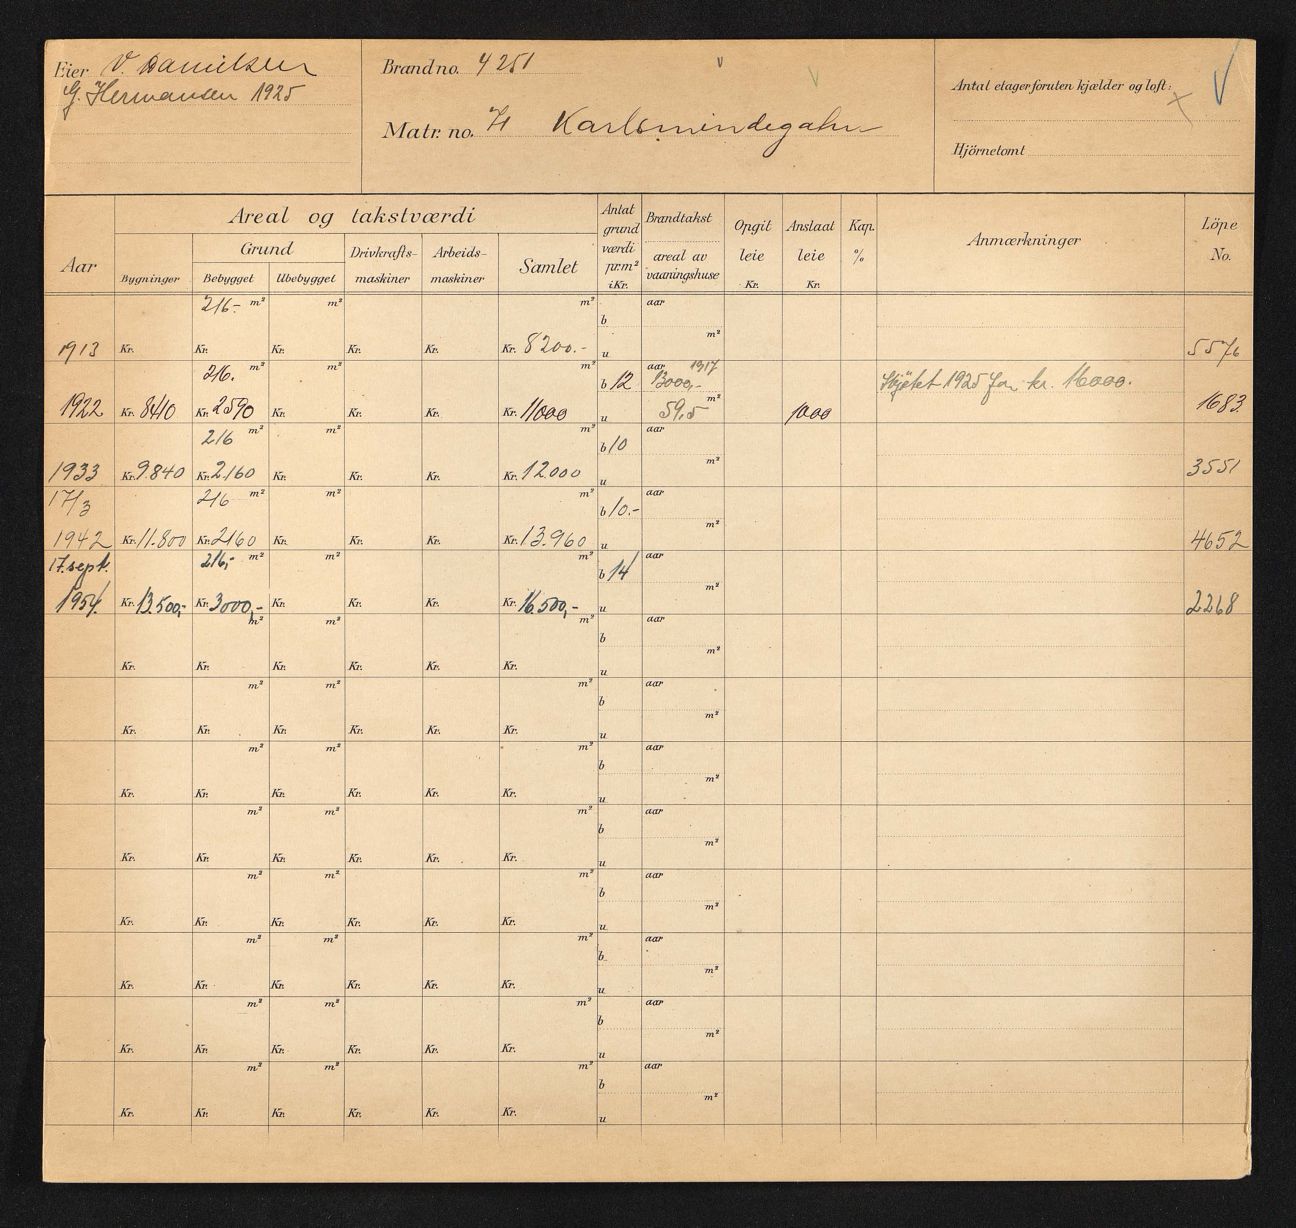 Eier V. Danielsen
G. Hermansen 1925
Brand no. 4251
Matr. no. 7f Karlsmindegaten
Antal etager foruten kjælder og loft:
Hjörnetomt
Aar
Areal og takstværdi
Grund
Bygninger Bebygget Ubebygget
Drivkrafts-
maskiner
Arbeids-
maskiner
Samlet
Antat
grund
værdi
pr. m²
i Kr.
Brandtakst
areal av
vaaningshuse
Opgit
leie
Kr.
Anslaat
leie
Kr.
Kap.
%
Anmærkninger
Löpe
No.
216.- m² m² m² b aar
1913 Kr. Kr. Kr. Kr. Kr. Kr. 8200.- u m² 5576
216. m² m² m² b 12 aar 1917 13000,- Skjøtet 1925 for kr. 16000.
1922 Kr. 8410 Kr. 2590 Kr. Kr. Kr. Kr. 11000 u 59,5 m² 1000 1683
216 m² m² m² b 10 aar
1933 Kr. 9.840 Kr. 2160 Kr. Kr. Kr. Kr. 12000 u m² 3551
17/3 216 m² m² m² b 10.- aar
1942 Kr. 11.800 Kr. 2160 Kr. Kr. Kr. Kr. 13.960 u m² 4652
17. sept. 216,- m² m² m² b 14 aar
1954. Kr. 13.500,- Kr. 3000,- Kr. Kr. Kr. Kr. 16500,- u m² 2268
m² m² m² b aar
Kr. Kr. Kr. Kr. Kr. Kr. u m²
m² m² m² b aar
Kr. Kr. Kr. Kr. Kr. Kr. u m²
m² m² m² b aar
Kr. Kr. Kr. Kr. Kr. Kr. u m²
m² m² m² b aar
Kr. Kr. Kr. Kr. Kr. Kr. u m²
m² m² m² b aar
Kr. Kr. Kr. Kr. Kr. Kr. u m²
m² m² m² b aar
Kr. Kr. Kr. Kr. Kr. Kr. u m²
m² m² m² b aar
Kr. Kr. Kr. Kr. Kr. Kr. u m²
m² m² m² b aar
Kr. Kr. Kr. Kr. Kr. Kr. u m²